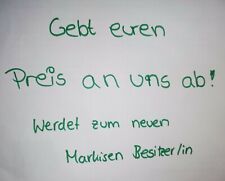 Gebt euren
Preis an uns ab!
Werdet zum neuen
Markisen Besitzer/in